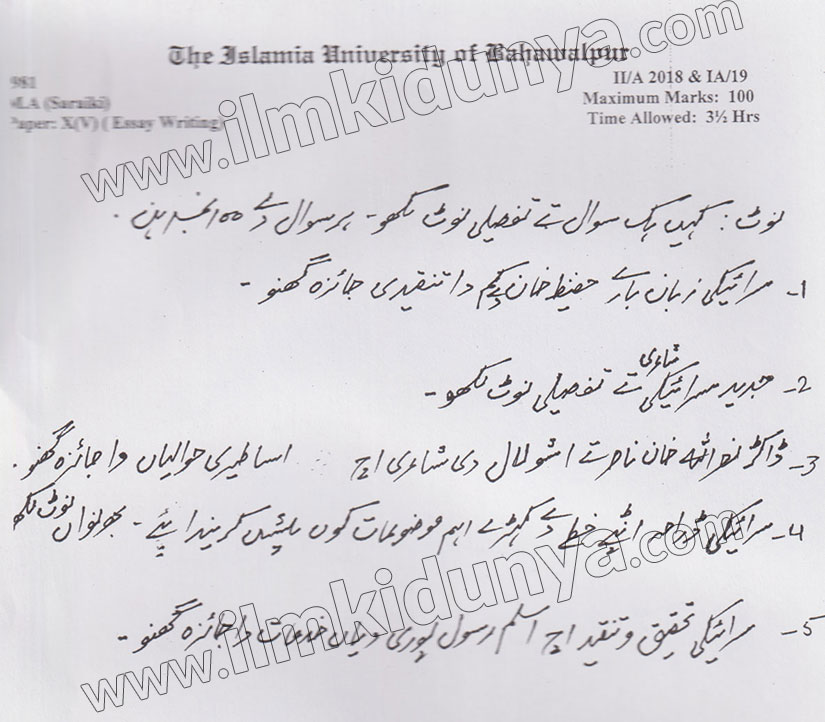 The Islamia University of Bahawalpur
981 II/A 2018 & IA/19
M.A (Saraiki) Maximum Marks: 100
Paper: X(V) ( Essay Writing) Time Allowed: 3½ Hrs
www.ilmkidunya.com
نوٹ: کہیں ہک سوال تے تفصیلی نوٹ لکھو۔ ہر سوال دے 100 نمبر ہن۔
1۔ سرائیکی زبان بارے حفیظ خان دے کم دا تنقیدی جائزہ گھنو۔
2۔ جدید سرائیکی شاعری تے تفصیلی نوٹ لکھو۔
3۔ ڈاکٹر نصراللہ خان ناصر تے اشولال دی شاعری اچ اساطیری حوالیاں دا جائزہ گھنو۔
4۔ سرائیکی ڈرامہ اپنے خطے دے کہڑے اہم موضوعات کوں پیش کریندا پئے۔ بھرنواں نوٹ لکھو
www.ilmkidunya.com
5۔ سرائیکی تحقیق و تنقید اچ اسلم رسول پوری دیاں خدمات دا جائزہ گھنو۔
www.ilmkidunya.com